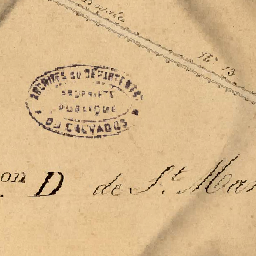 N° 13
ARCHIVES DU DÉPARTEMENT
PROPRIÉTÉ
PUBLIQUE
DU CALVADOS
on D de St. Mar